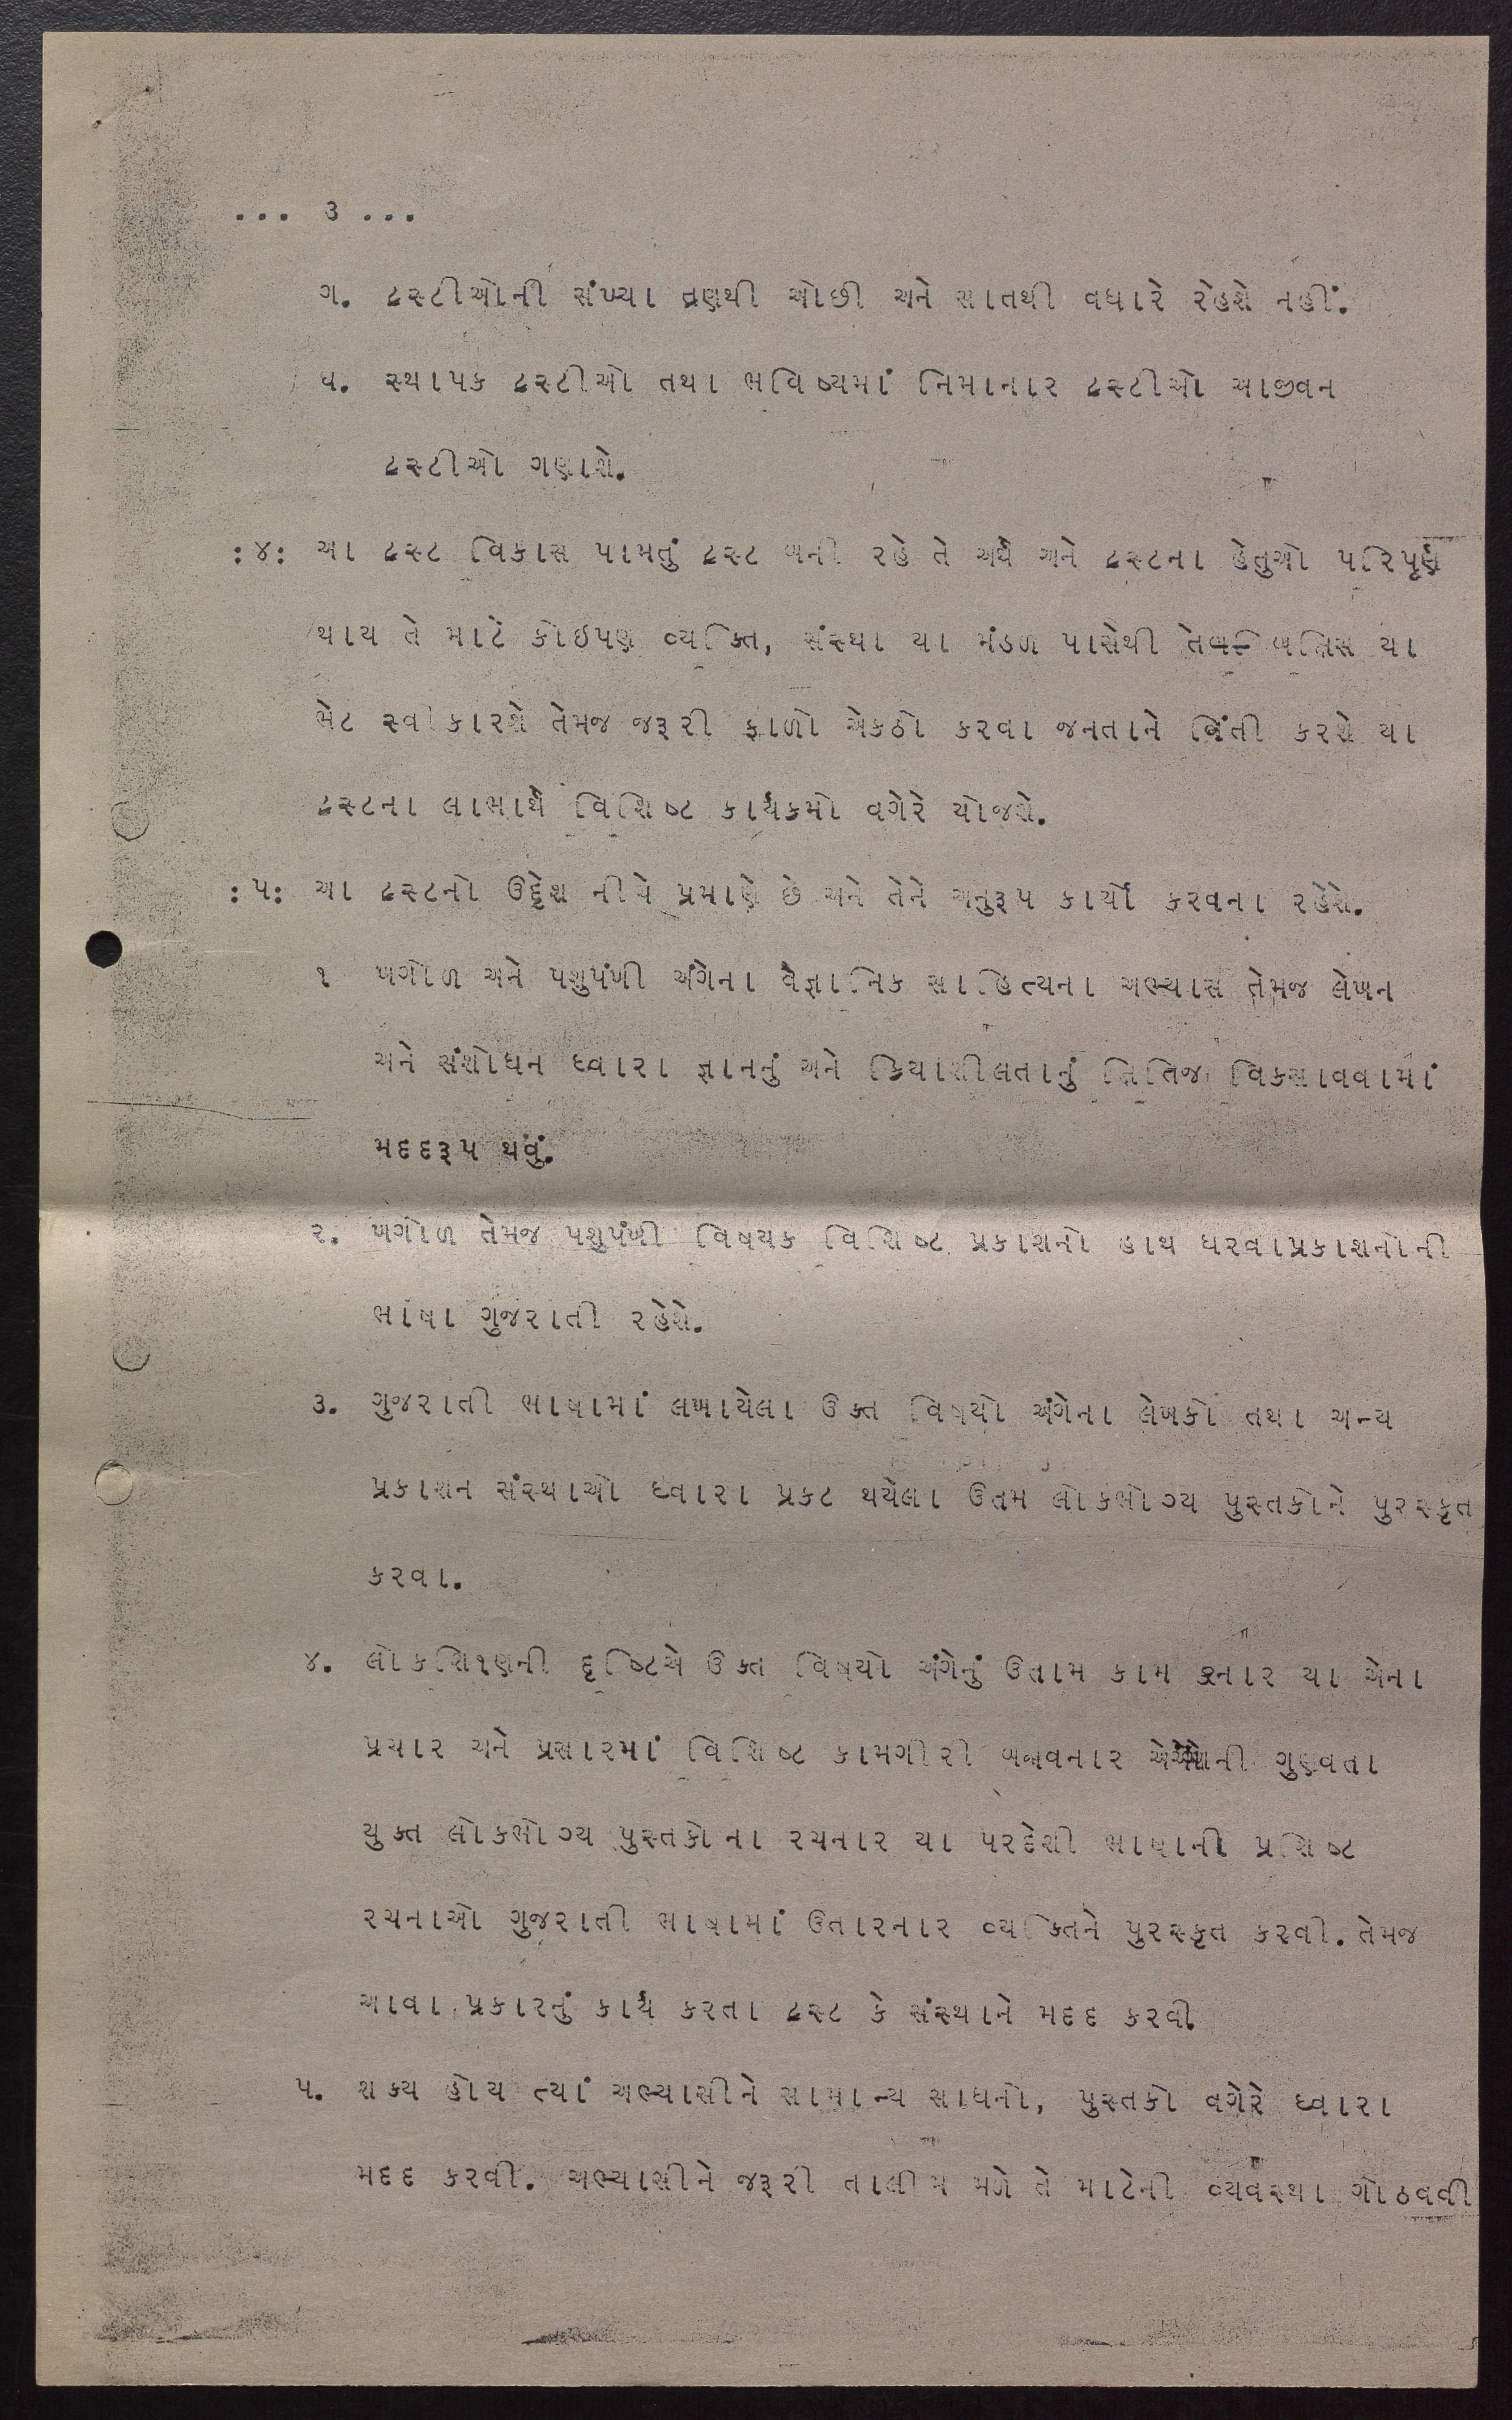 ... ૩ ...
ગ. ટ્રસ્ટીઓની સંખ્યા ત્રણથી ઓછી અને સાતથી વધારે રેહશે નહીં.
ઘ. સ્થાપક ટ્રસ્ટીઓ તથા ભવિષ્યમાં નિમાનાર ટ્રસ્ટીઓ આજીવન
ટ્રસ્ટીઓ ગણાશે.
:૪: આ ટ્રસ્ટ વિકાસ પામતું ટ્રસ્ટ બની રહે તે અર્થે અને ટ્રસ્ટના હેતુઓ પરિપૂર્ણ
થાય તે માટે કોઇપણ વ્યક્તિ, સંસ્થા યા મંડળ પાસેથી બક્ષિસ યા
ભેટ સ્વીકારશે તેમજ જરૂરી ફાળો એકઠો કરવા જનતાને વિંતી કરશે યા
ટ્રસ્ટના લાભાર્થે વિશિષ્ટ કાર્યક્રમો વગેરે યોજશે.
:૫: આ ટ્રસ્ટનો ઉદ્દેશ નીચે પ્રમાણે છે અને તેને અનુરૂપ કાર્યો કરવના રહેશે.
૧ ખગોળ અને પશુપંખી અંગેના વૈજ્ઞાનિક સાહિત્યના અભ્યાસ તેમજ લેખન
અને સંશોધન ધ્વારા જ્ઞાનનું અને ક્રિયાશીલતાનું ક્ષિતિજ વિકસાવવામાં
મદદરૂપ થવું.
૨. ખગોળ તેમજ પશુપંખી વિષયક વિશિષ્ટ પ્રકાશનો હાથ ધરવાપ્રકાશનોની
ભાષા ગુજરાતી રહેશે.
૩. ગુજરાતી ભાષામાં લખાયેલા ઉક્ત વિષયો અંગેના લેખકો તથા અન્ય
પ્રકાશન સંસ્થાઓ ધ્વારા પ્રકટ થયેલા ઉતમ લોકભોગ્ય પુસ્તકોને પુરસ્કૃત
કરવા.
૪. લોકશિ૧ણની દૃષ્ટિએ ઉક્ત વિષયો અંગેનું ઉતામ કામ કરનાર યા એના
પ્રચાર અને પ્રસારમાં વિશિષ્ટ કામગીરી બજાવનાર ગુણવતા
યુક્ત લોકભોગ્ય પુસ્તકોના રચનાર યા પરદેશી ભાષાની પ્રશિષ્ટ
રચનાઓ ગુજરાતી ભાષામાં ઉતારનાર વ્યક્તિને પુરસ્કૃત કરવી. તેમજ
આવા પ્રકારનું કાર્ય કરતા ટ્રસ્ટ કે સંસ્થાને મદદ કરવી.
૫. શક્ય હોય ત્યાં અભ્યાસીને સામાન્ય સાધનો, પુસ્તકો વગેરે ધ્વારા
મદદ કરવી. અભ્યાસીને જરૂરી તાલીમ મળે તે માટેની વ્યવસ્થા ગોઠવવી